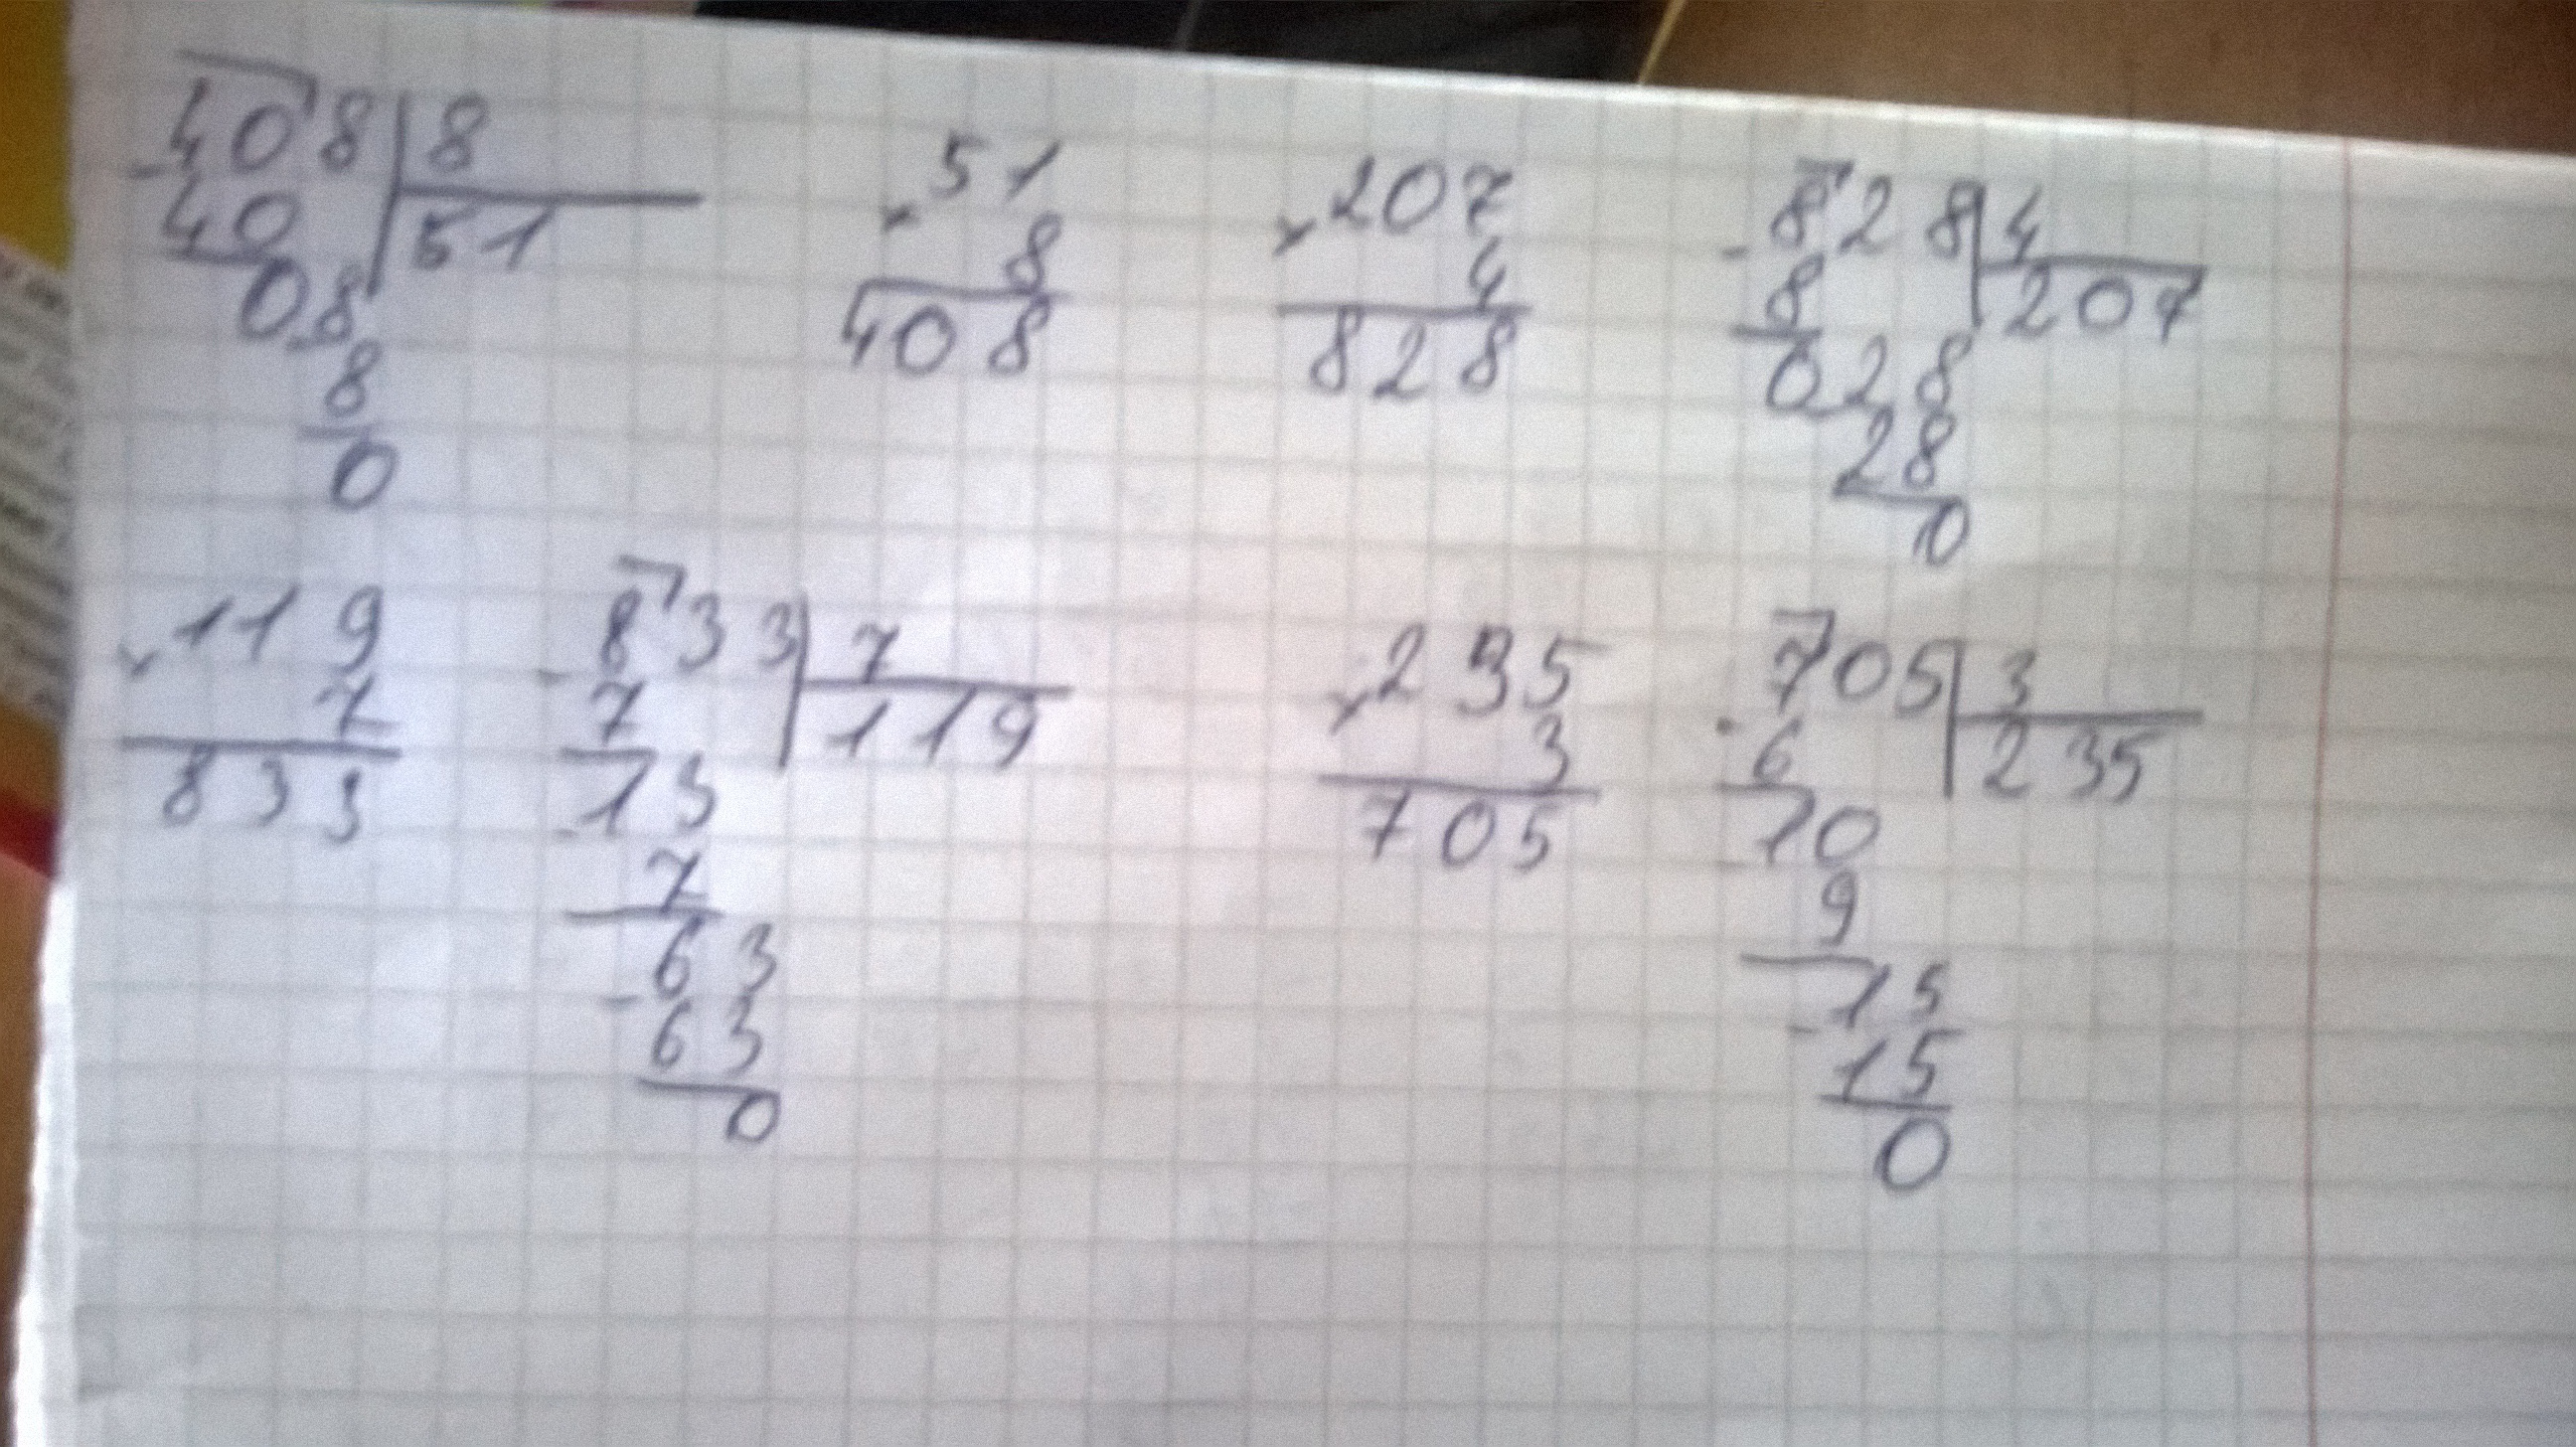 408 | 8
- 40 | 51
08
- 8
0
51
× 8
408
207
× 4
828
828 | 4
- 8 | 207
028
- 28
0
119
× 7
833
833 | 7
- 7 | 119
13
- 7
63
- 63
0
235
× 3
705
705 | 3
- 6 | 235
10
9
15
- 15
0